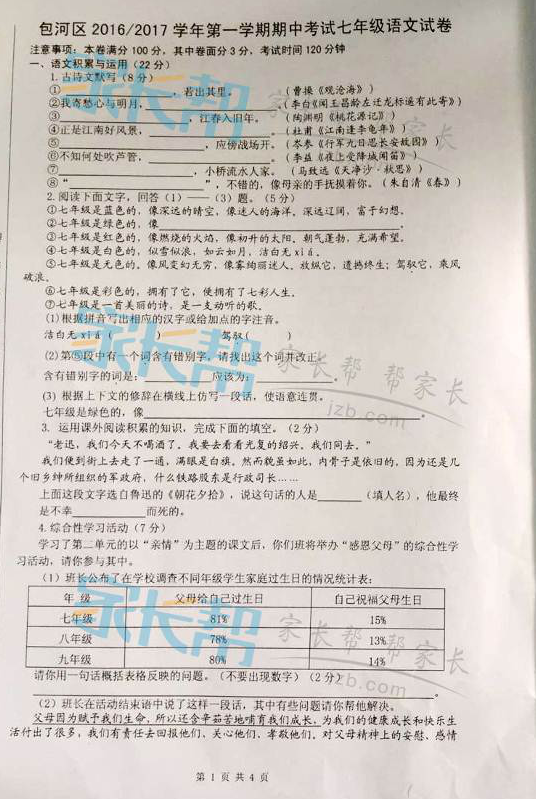 包河区2016/2017学年第一学期期中考试七年级语文试卷
注意事项：本卷满分100分，其中卷面分3分，考试时间120分钟
一、语文积累与运用（22分）
1.古诗文默写（8分）
①____________，若出其里。 （曹操《观沧海》）
②我寄愁心与明月，____________。（李白《闻王昌龄左迁龙标遥有此寄》）
③____________，江春入旧年。
（陶渊明《桃花源记》）
④正是江南好风景，____________。 （杜甫《江南逢李龟年》）
⑤____________，应傍战场开。（岑参《行军九日思长安故园》）
⑥不知何处吹芦管，____________。（李益《夜上受降城闻笛》）
⑦____________，小桥流水人家。（马致远《天净沙·秋思》）
⑧“____________”，不错的，像母亲的手抚摸着你。（朱自清《春》）
2.阅读下面文字，回答（1）—（3）题。（5分）
①七年级是蓝色的，像深远的晴空，像迷人的海洋，深远辽阔，富于幻想。
②七年级是绿色的，像____________
③七年级是红色的，像燃烧的火焰，像初升的太阳，朝气蓬勃，充满希望。
④七年级是白色的，似雪似浪，如云如月，洁白无xiá。
⑤七年级是无色的，像风变幻无穷，像雾绚丽迷人。放纵它，遗憾终生；驾驭它，乘风
破浪。
⑥七年级是彩色的，拥有了它，便拥有了七彩人生。
⑦七年级是一首美丽的诗，是一支动听的歌。
(1)根据拼音写出相应的汉字或给加点的字注音。
洁白无xiá（ ） 驾驭（ ）
(2)第⑤段中有一个词含有错别字，请找出这个词并改正。
含有错别字的词是：________应该为：________。
(3)根据上下文的修辞在横线上仿写一段话，使语意连贯。
七年级是绿色的，像____________。
3. 运用课外阅读积累的知识，完成下面的填空。（2分）
“老迅，我们今天不喝酒了。我要去看看光复的绍兴。我们同去。”
我们便到街上去走了一通，满眼是白旗。然而貌虽如此，内骨子是依旧的，因为还是几
个旧乡绅所组织的军政府，什么铁路股东是行政司长……
上面这段文字选自鲁迅的《朝花夕拾》，说这句话的人是______（填人名），他最终
是不幸________而死的。
4. 综合性学习活动（7分）
学习了第二单元的以“亲情”为主题的课文后，你们班将举办“感恩父母”的综合性学
习活动，请你参与其中。
（1）班长公布了在学校调查不同年级学生家庭过生日的情况统计表：
年 级 父母给自己过生日 自己祝福父母生日
七年级 81% 15%
八年级 78% 13%
九年级 80% 14%
请你用一句话概括表格反映的问题。（不要出现数字）（2分）
（2）班长在活动结束语中说了这样一段话，其中有些问题请你帮他解决。
父母因为赋予我们生命，所以还含辛茹苦地哺育我们成长，为我们的健康成长和快乐生
活付出了很多，我们有责任去回报他们、关心他们、孝敬他们，对父母精神上的安慰、感情
第 1 页 共 4 页
家长帮
家长帮
家长帮
家长帮
帮家长
jzb.com
家长帮
帮家长
jzb.com